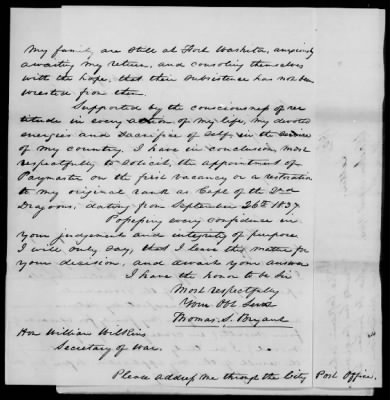 My family are still at Fort Washita, anxiously
awaiting my return, and consoling themselves
with the hope, that their subsistence has not been
wrested from them.
Supported by the consciousness of rec-
titude in every action of my life, my devoted
energies and sacrifice of self, in the service
of my country, I have in conclusion, most
respectfully to solicit, the appointment of
Paymaster on the first vacancy or a restoration
to my original rank as Capt of the 2nd
Dragoons, dating from September 26th 1837.
Possessing every confidence in
your judgement and integrity of purpose
I will only say, that I leave the matter for
your decision, and await your answer
I have the honor to be Sir
Most respectfully
Your Obt Servt
Thomas. S. Bryant
Hon William Wilkins
Secretary of War.
Please address me through the City Post Office.